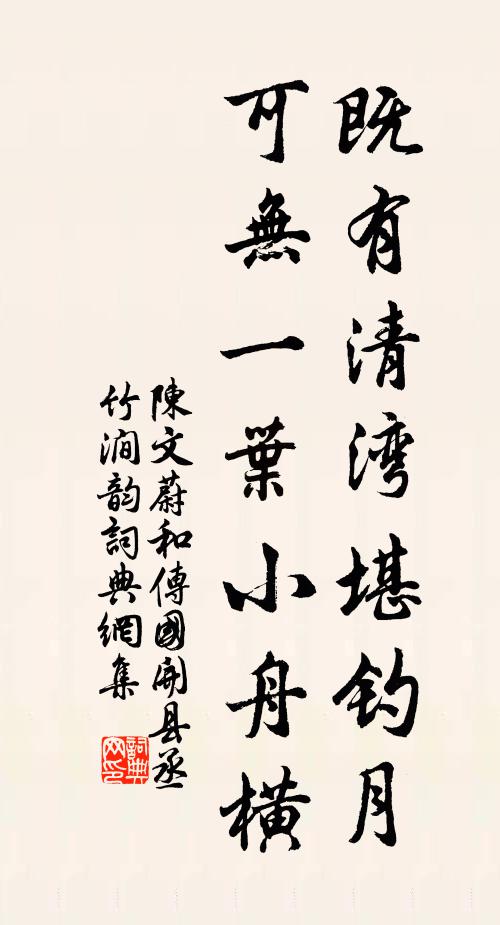 既有清湾堪钓月
可無一葉小舟横
陳文蔚和傳國開县丞
竹澗韵詞典網集
詞典网印